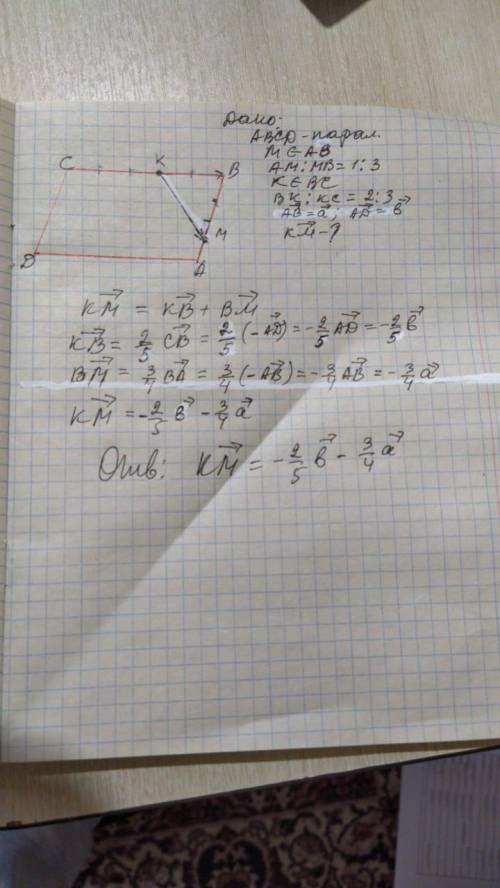 Дано:
ABCD - парал.
M ∈ AB
AM : MB = 1 : 3
K ∈ BC
BK : KC = 2 : 3
AB→ = a→ ; AD→ = b→
KM→ - ?
C K B
M
D A
KM→ = KB→ + BM→
KB→ = 2/5 CB→ = 2/5 (-AD→) = -2/5 AD→ = -2/5 b→
BM→ = 3/4 BA→ = 3/4 (-AB→) = -3/4 AB→ = -3/4 a→
KM→ = -2/5 b→ - 3/4 a→
Отв: KM→ = -2/5 b→ - 3/4 a→